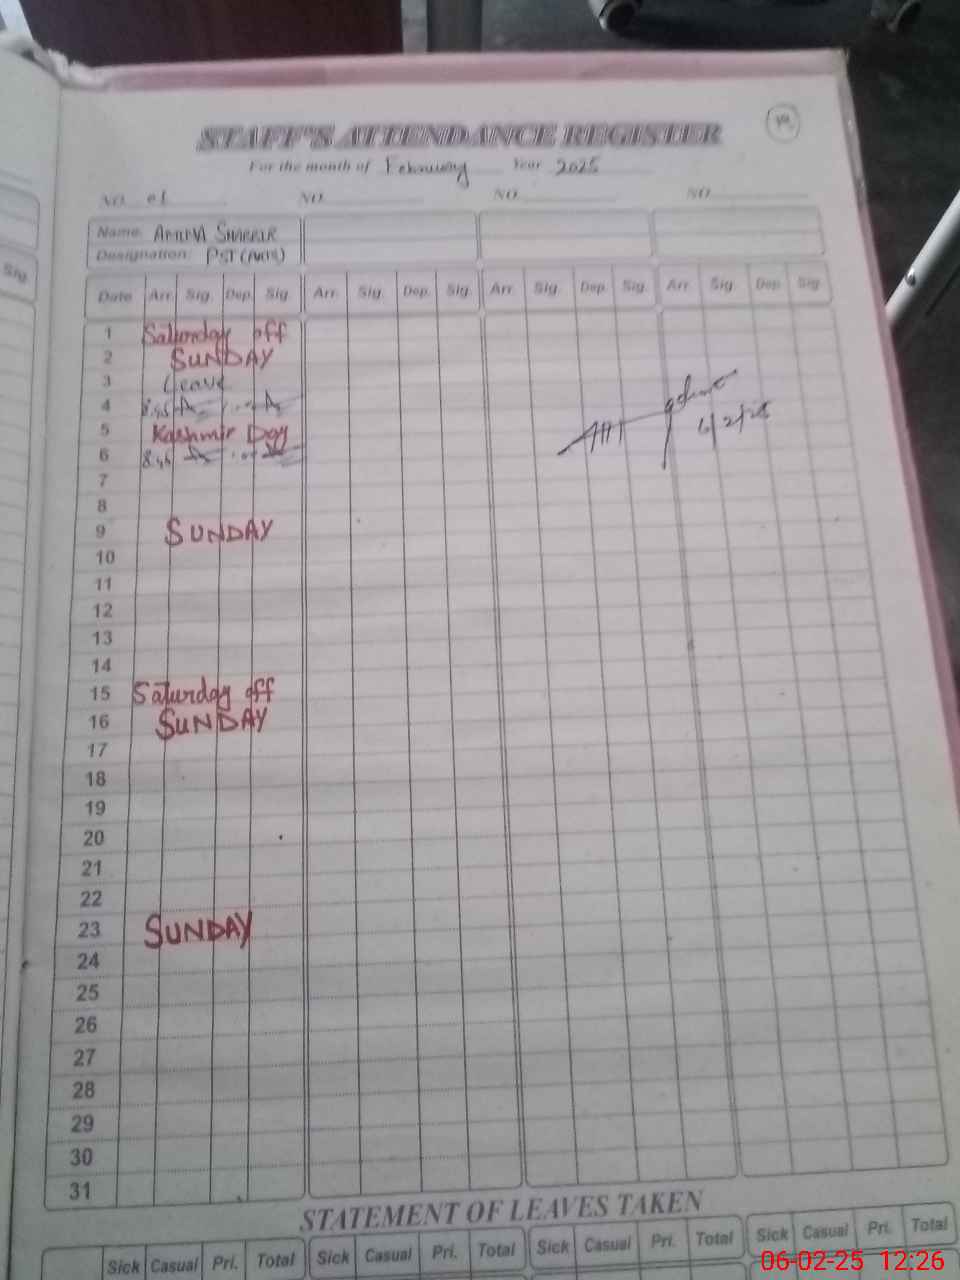 STAFF'S ATTENDANCE REGISTER
For the month of February Year 2025
NO. 01 NO. NO. NO.
Name: AMINA SHABBIR
Designation: PST
Sig.
Date Arr. Sig. Dep. Sig. Arr. Sig. Dep. Sig. Arr. Sig. Dep. Sig. Arr. Sig. Dep. Sig.
1 Saturday off
2 SUNDAY
3 Leave
4 8:45
5 Kashmir Day
6 8:45
6/2/25
7
8
9 SUNDAY
10
11
12
13
14
15 Saturday off
16 SUNDAY
17
18
19
20
21
22
23 SUNDAY
24
25
26
27
28
29
30
31
STATEMENT OF LEAVES TAKEN
Sick Casual Pri. Total Sick Casual Pri. Total Sick Casual Pri. Total Sick Casual Pri. Total
06-02-25 12:26